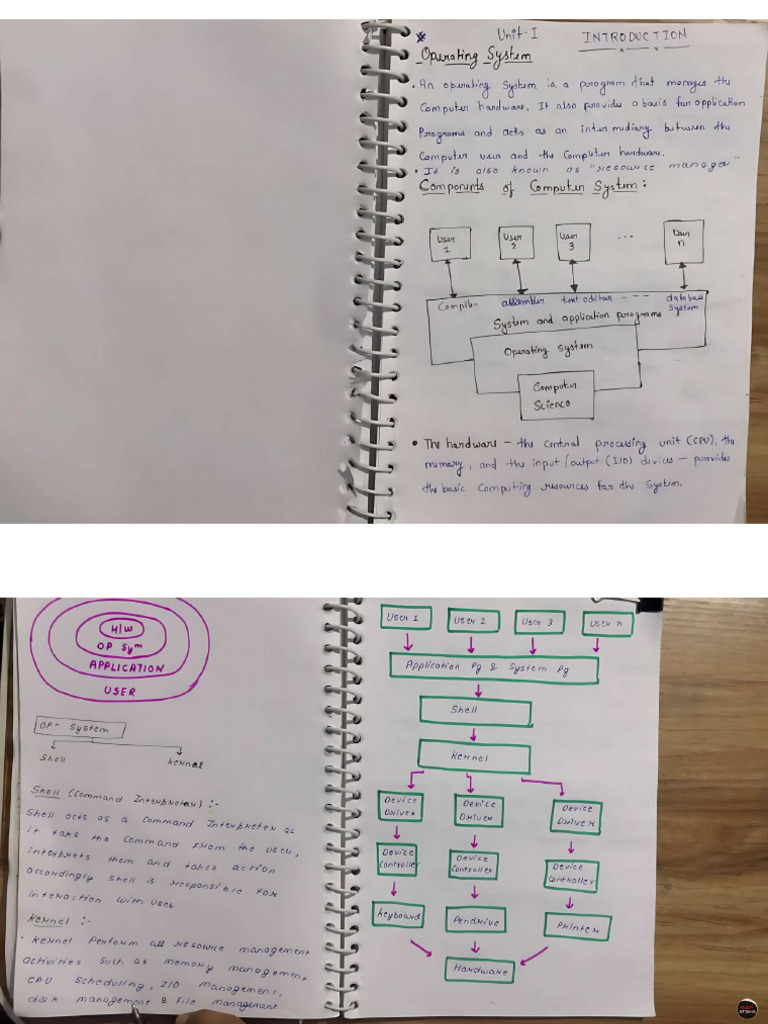 Unit-I INTRODUCTION
Operating System
• An operating System is a program that manages the
Computer hardware. It also provides a basis for application
Programs and acts as an intermediary between the
Computer user and the Computer hardware.
• It is also known as "resource manager"
Components of Computer System:
User 1
User 2
User 3
...
User n
Compiler assembler text editor - - - database system
System and application programs
Operating System
Computer
Science
• The hardware – the central processing unit (CPU), the
memory, and the input/output (I/O) devices – provides
the basic Computing resources for the System.
H/W
OP Sym
APPLICATION
USER
OP- System
Shell Kernel
Shell (Command Interpreter) :-
Shell acts as a Command Interpreter as
it takes the Command from the user,
interprets them and takes action
accordingly Shell is responsible for
interaction with user
Kernel :-
• Kernel Perform all resource management
activities Such as memory management,
CPU Scheduling, I/O management,
disk management & File management
User 1
User 2
User 3
User n
Application Pg & System Pg
Shell
Kernel
Device Driver
Device Driver
Device Driver
Device Controller
Device Controller
Device Controller
Keyboard
Pendrive
Printer
Hardware